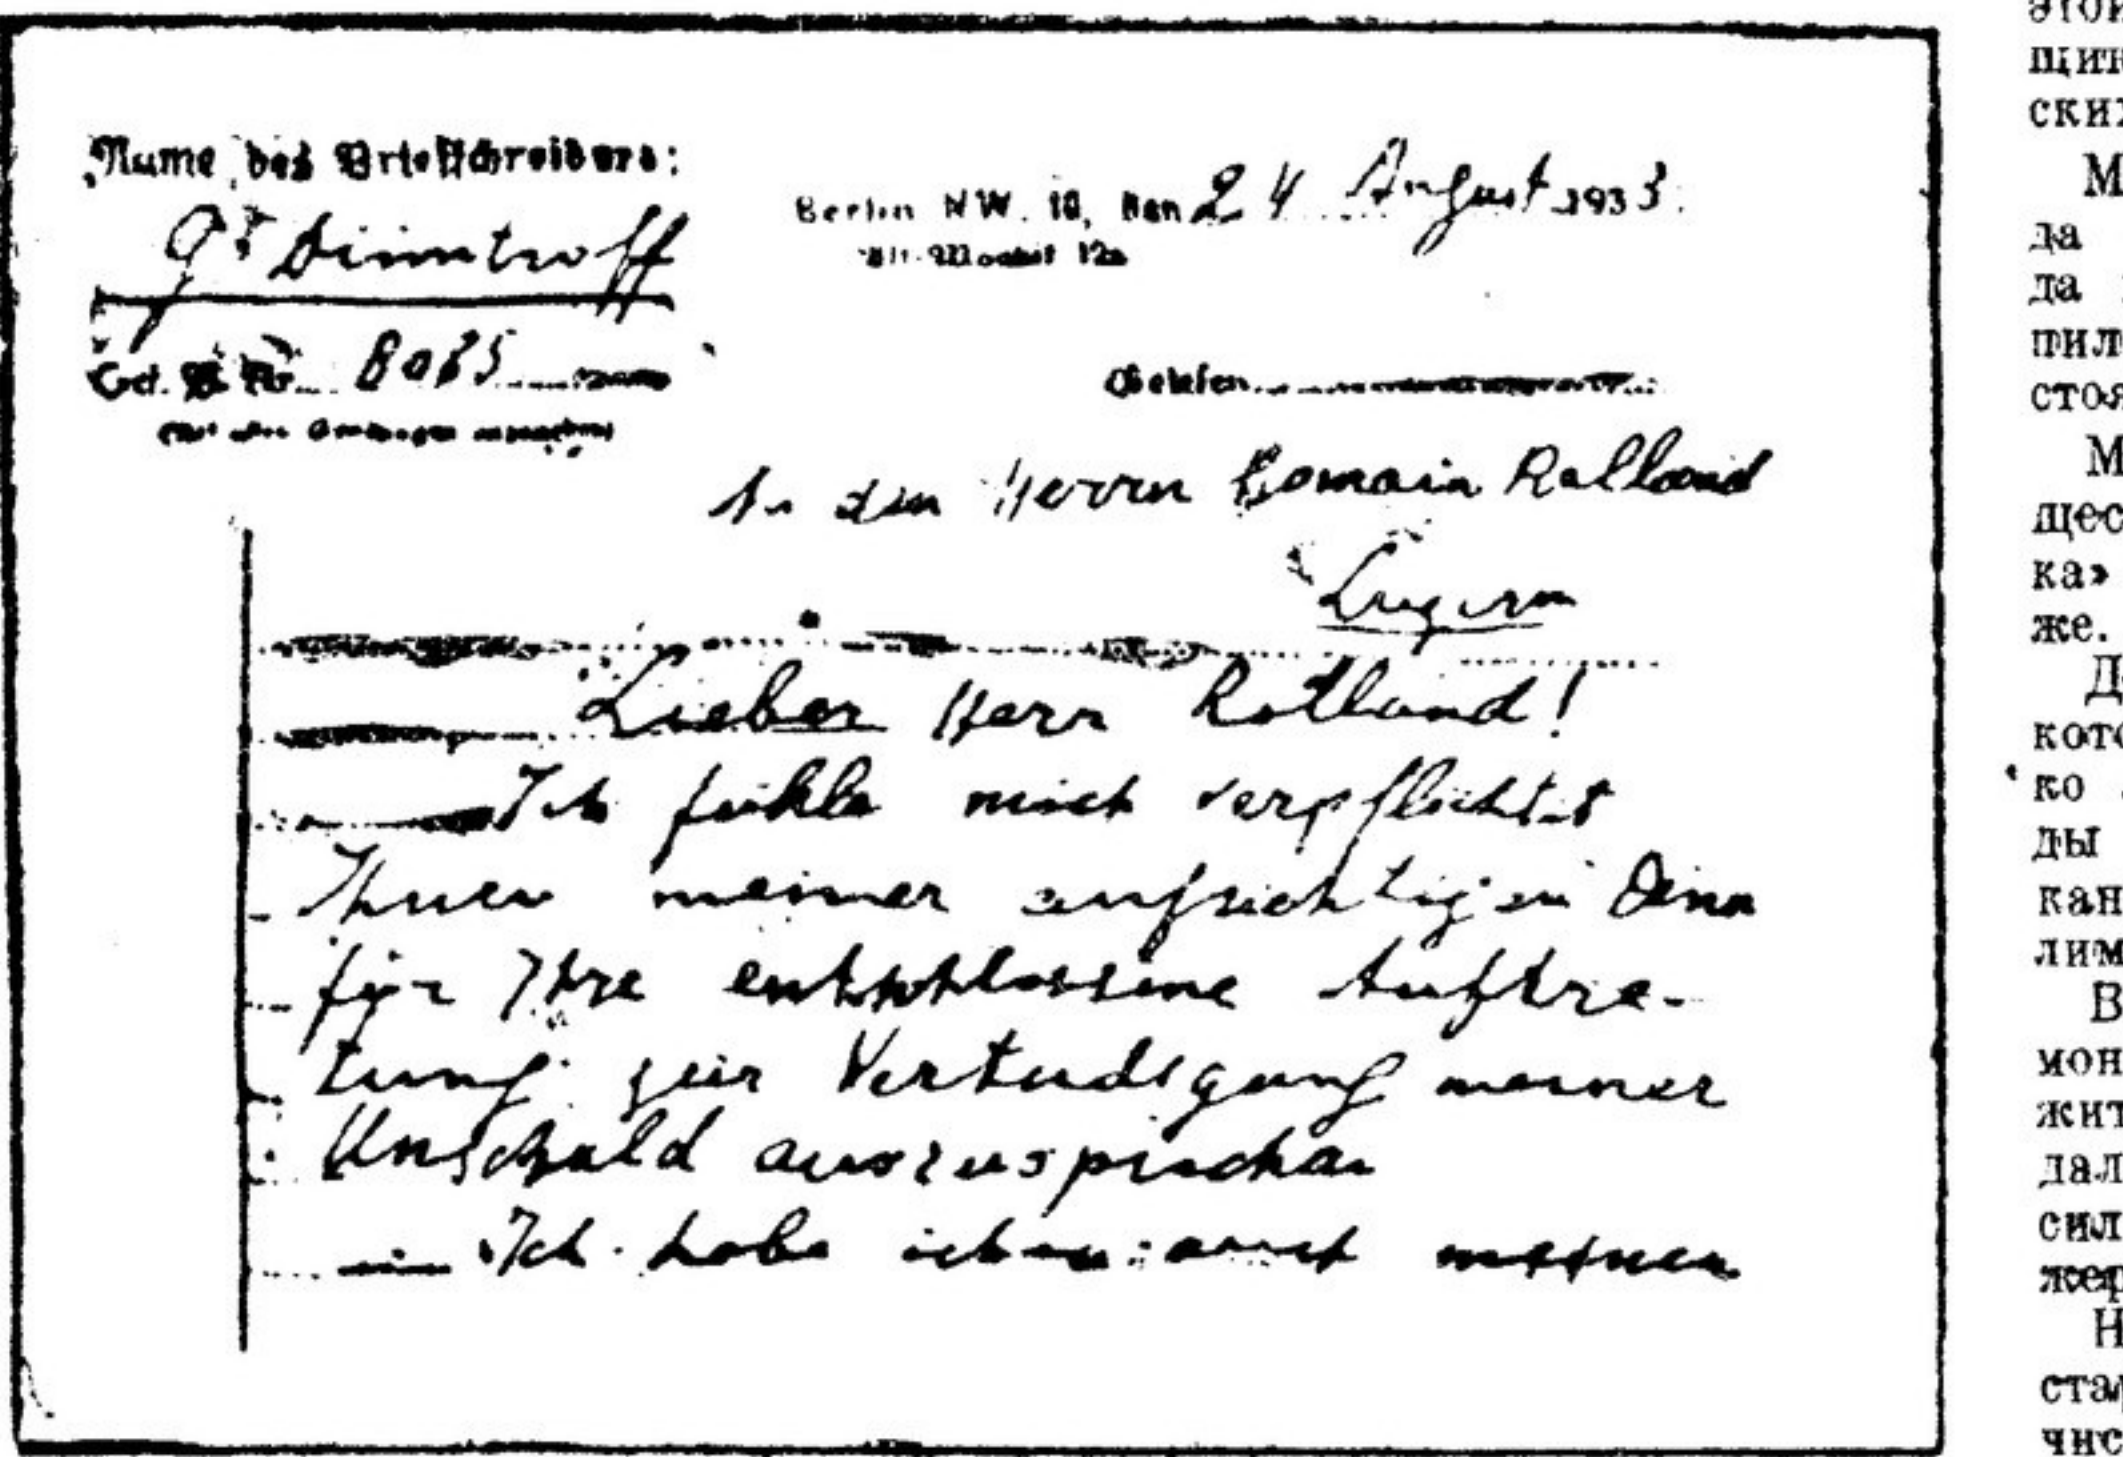 Name des Briefschreibers:
G. Dimitroff
Berlin NW. 10, den 24 August 1933.
Alt-Moabit 12a
Gef. B. Nr. 8035
Gelesen
An den Herrn Romain Rolland
Luzern
Lieber Herr Rolland!
Ich fühle mich verpflichtet
Ihnen meiner aufrichtigen Dank
für Ihre entschlossene Auftre-
tung zur Verteidigung meiner
Unschuld auszusprechen
Ich habe schon auch meinen
этой
щик
ских
М
да
да
пил
стоя
М
щес
ка»
же.
Д
кото
ко
ды
кан
лим
В
мон
жит
дал
сил
жер
Н
стар
чис